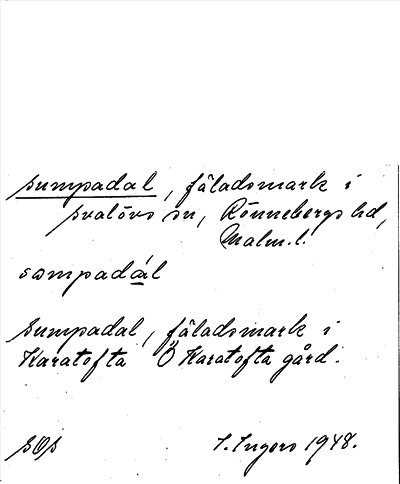 sumpadal, fäladsmark i
svalövs sn, Rönnebergs hd,
Malm.l.
sompadál
sumpadal, fäladsmark i
Karatofta Ö Karatofta gård.
SOS
I. Ingers 1948.